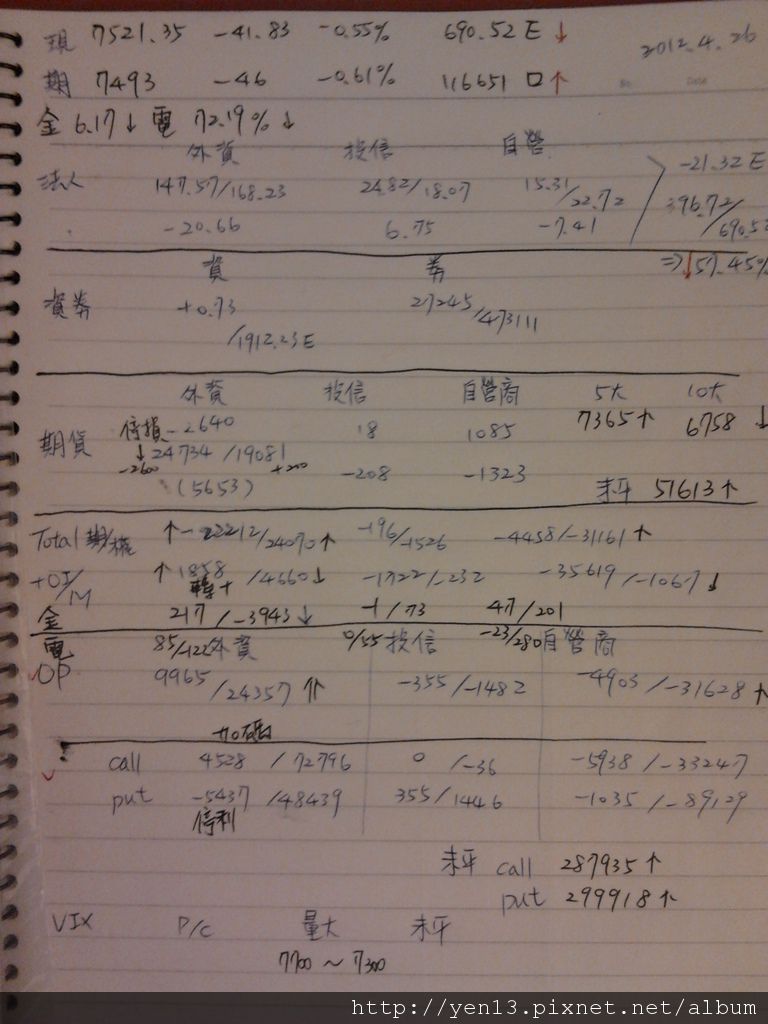 現 7521.35 -41.83 -0.55% 690.52 E ↓ 2012.4.26
期 7493 -46 -0.61% 116651 口 ↑
金 6.17 ↓ 電 72.19% ↓
外資 投信 自營
法人 147.57/168.23 24.82/18.07 15.31/22.72 -21.32 E
-20.66 6.75 -7.41 396.72/690.52
資 券 ⇒ ↓57.45%
資券 +0.73 27245/473111
/1912.23 E
外資 投信 自營商 5大 10大
期貨 停損 -2640 18 1085 7365 ↑ 6758 ↓
↓ 24734 /19081
-2600 +200 -208 -1323
(5653) 未平 51613 ↑
Total 期/權 /24070 ↑ -196/-1526 -4458/-31161 ↑
+OI/M ↑ 1858 /4660 ↓ -1722/-232 -35619 /-1067 ↓
轉+
金 217 / -3943 ↓ -1 / 73 47 / 201
電 85/-122 外資 0/55 投信 -23/280 自營商
OP 9965/24357 ⇑ -355 /-1482 -4903 /-31628 ↑
加碼
call 4528 / 72796 0 /-36 -5938 /-33247
put -5437 /48439 355/1446 -1035 /-89129
停利
未平 call 287935 ↑
put 299918 ↑
VIX P/C 量大 未平
7700 ~ 7300
http://yen13.pixnet.net/album